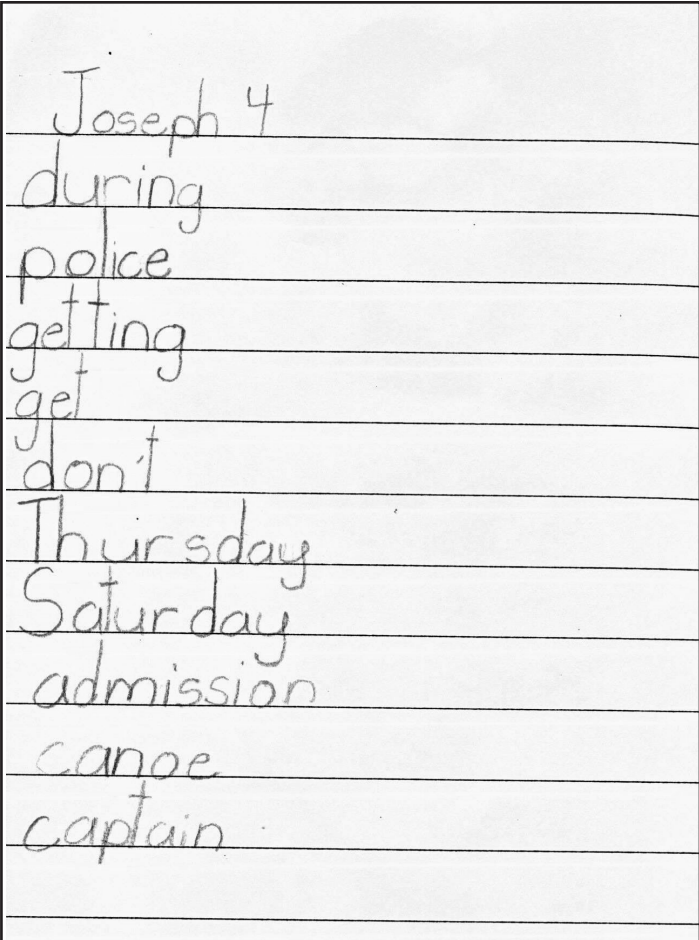 Joseph 4
during
police
getting
get
don't
Thursday
Saturday
admission
canoe
captain